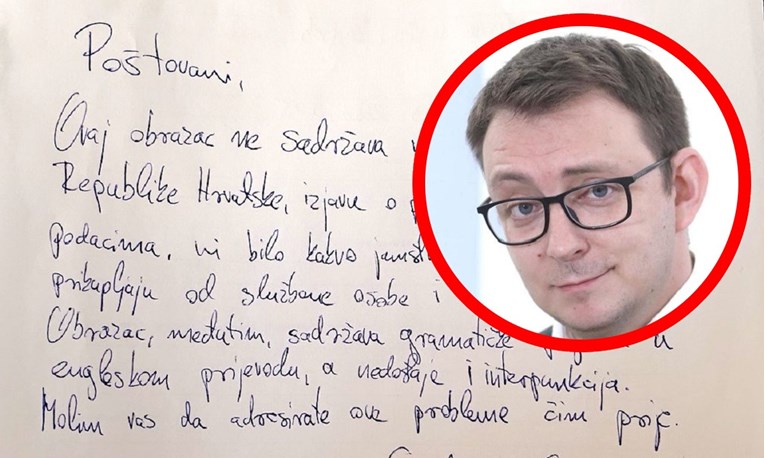 Poštovani,
Ovaj obrazac ne sadržava
Republike Hrvatske, izjavu o
podacima, ni bilo kakvo
prikupljaju od službene osobe i
Obrazac, međutim, sadržava gramatičke
engleskom prijevodu, a nedostaje i interpunkcija.
Molim vas da adresirate ove probleme čim prije.